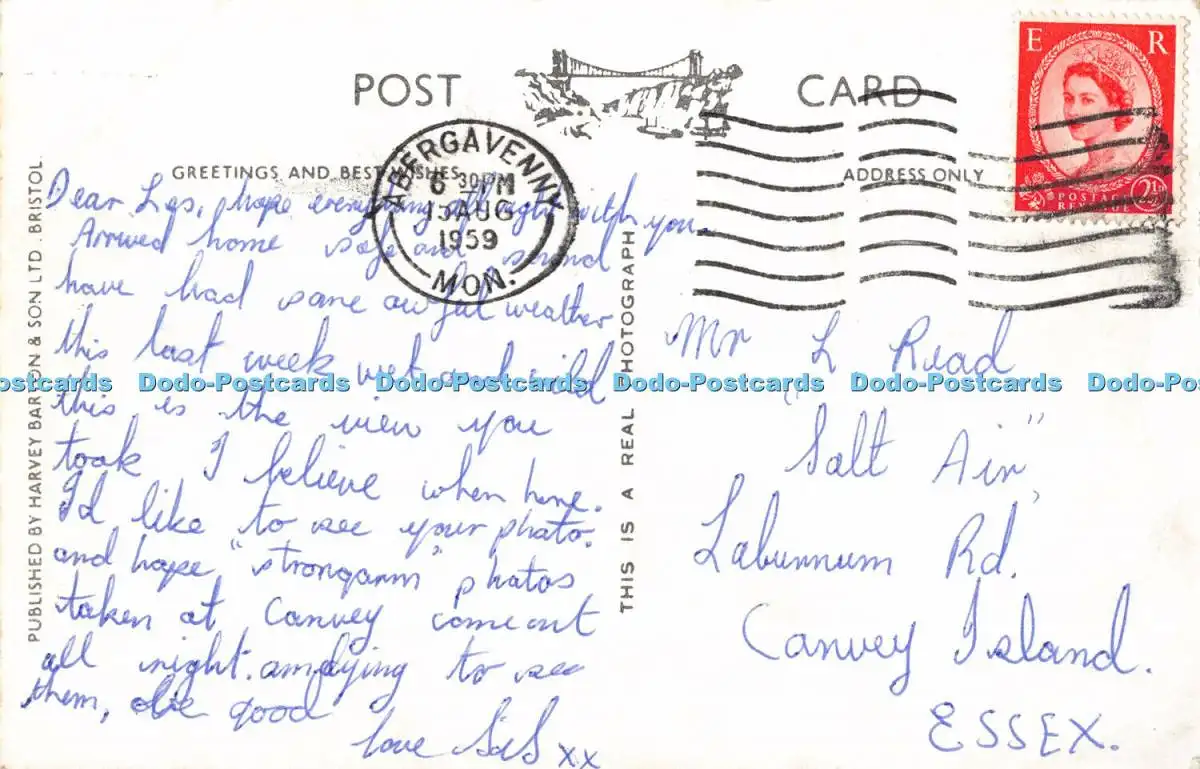 POST CARD
E R
POSTAGE
REVENUE
2½D
ABERGAVENNY
6 30PM
15 AUG
1959
MON.
GREETINGS AND BEST WISHES
ADDRESS ONLY
Dear Les, hope everything all right with you.
Arrived home safe and sound
have had some awful weather
this last week wet and wild
this is the view you
took I believe when here.
I'd like to see your photo.
and hope "strongarm" photos
taken at Canvey come out
all right. am dying to see
them, be good
love SiS xx
Mr L Read
"Salt Air"
Laburnum Rd.
Canvey Island.
ESSEX.
PUBLISHED BY HARVEY BARTON & SON LTD. BRISTOL.
THIS IS A REAL PHOTOGRAPH
Dodo-Postcards Dodo-Postcards Dodo-Postcards Dodo-Postcards Dodo-Postcards Dodo-Postcards